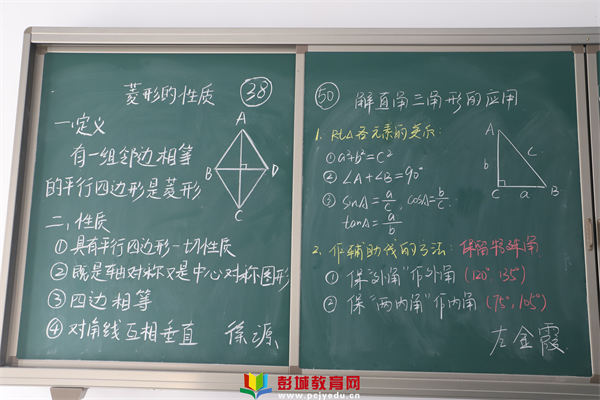 菱形的性质 38
一、定义
有一组邻边相等
的平行四边形是菱形
二、性质
① 具有平行四边形一切性质
② 既是轴对称又是中心对称图形
③ 四边相等
④ 对角线互相垂直 徐源
A
B D
C
50 解直角三角形的应用
1. Rt△各元素的关系:
① a²+b²=c²
② ∠A+∠B=90°
③ sinA=a/c, cosA=b/c
tanA=a/b
A
b c
C a B
2. 作辅助线的方法: 保留特殊角
① 保"外角"作外角(120°, 135°)
② 保"两内角"作内角(75°, 105°)
左金霞
彭城教育网
www.pcjyedu.cn